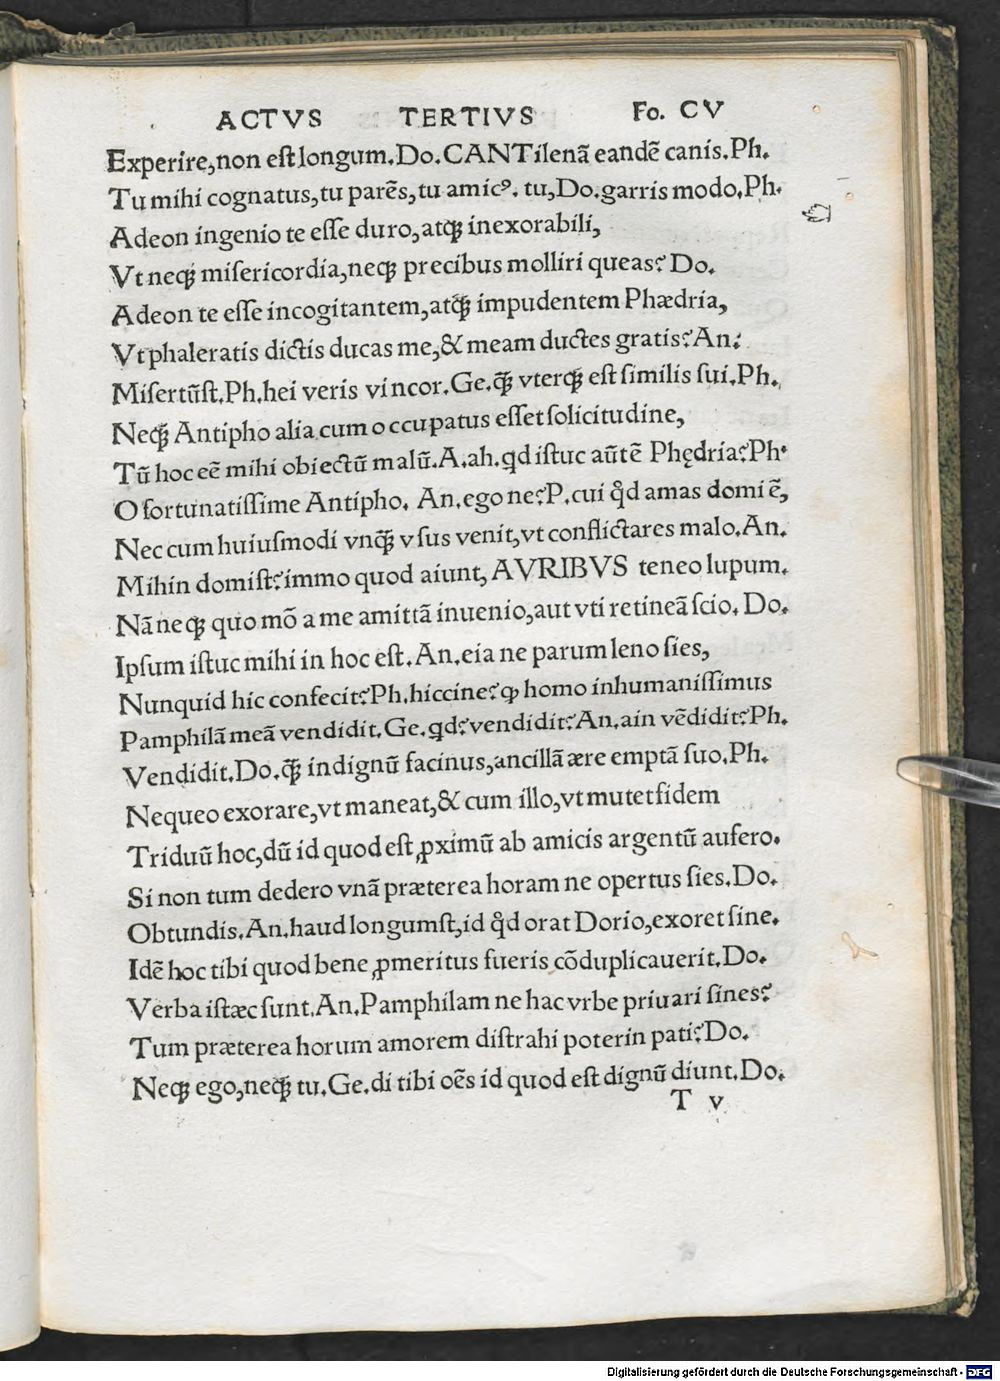 ACTVS TERTIVS Fo. CV
Experire,non eſt longum.Do.CANTilenā eandē canis.Ph.
Tu mihi cognatus,tu parēs,tu amicꝰ. tu,Do.garris modo.Ph.
Adeon ingenio te eſſe duro,atqꝫ inexorabili,
Vt neqꝫ miſericordia,neqꝫ precibus molliri queas? Do.
Adeon te eſſe incogitantem,atqꝫ impudentem Phædria,
Vt phaleratis dictis ducas me,& meam ductes gratis?An.
Miſertūſt.Ph.hei veris vincor.Ge.q̄ꝫ vterqꝫ eſt ſimilis ſui.Ph.
Neqꝫ Antipho alia cum occupatus eſſet ſolicitudine,
Tū hoc eē mihi obiectū malū.A.ah.qd iſtuc aūtē Phędria?Ph.
O fortunatiſſime Antipho. An.ego ne?P.cui qd̓ amas domi ē,
Nec cum huiuſmodi vnq̄ꝫ vſus venit,vt conflictares malo.An.
Mihin domiſt?immo quod aiunt, AVRIBVS teneo lupum.
Nā neqꝫ quo mō a me amittā inuenio,aut vti retineā ſcio. Do.
Ipſum iſtuc mihi in hoc eſt.An.eia ne parum leno ſies,
Nunquid hic confecit?Ph.hiccine?ꝙ homo inhumaniſſimus
Pamphilā meā vendidit.Ge.qd?vendidit?An.ain vēdidit?Ph.
Vendidit.Do.q̄ꝫ indignū facinus,ancillā ære emptā ſuo.Ph.
Nequeo exorare,vt maneat,& cum illo,vt mutet fidem
Triduū hoc,dū id quod eſt ꝓximū ab amicis argentū aufero.
Si non tum dedero vnā præterea horam ne opertus ſies.Do.
Obtundis.An.haud longumſt,id qd̓ orat Dorio,exoret ſine.
Idē hoc tibi quod bene ꝓmeritus fueris cōduplicauerit.Do.
Verba iſtæc ſunt.An.Pamphilam ne hac vrbe priuari ſines?
Tum præterea horum amorem diſtrahi poterin pati?Do.
Neqꝫ ego,neqꝫ tu.Ge.di tibi oēs id quod eſt dignū diunt.Do.
T v
Digitalisierung gefördert durch die Deutsche Forschungsgemeinschaft - DFG